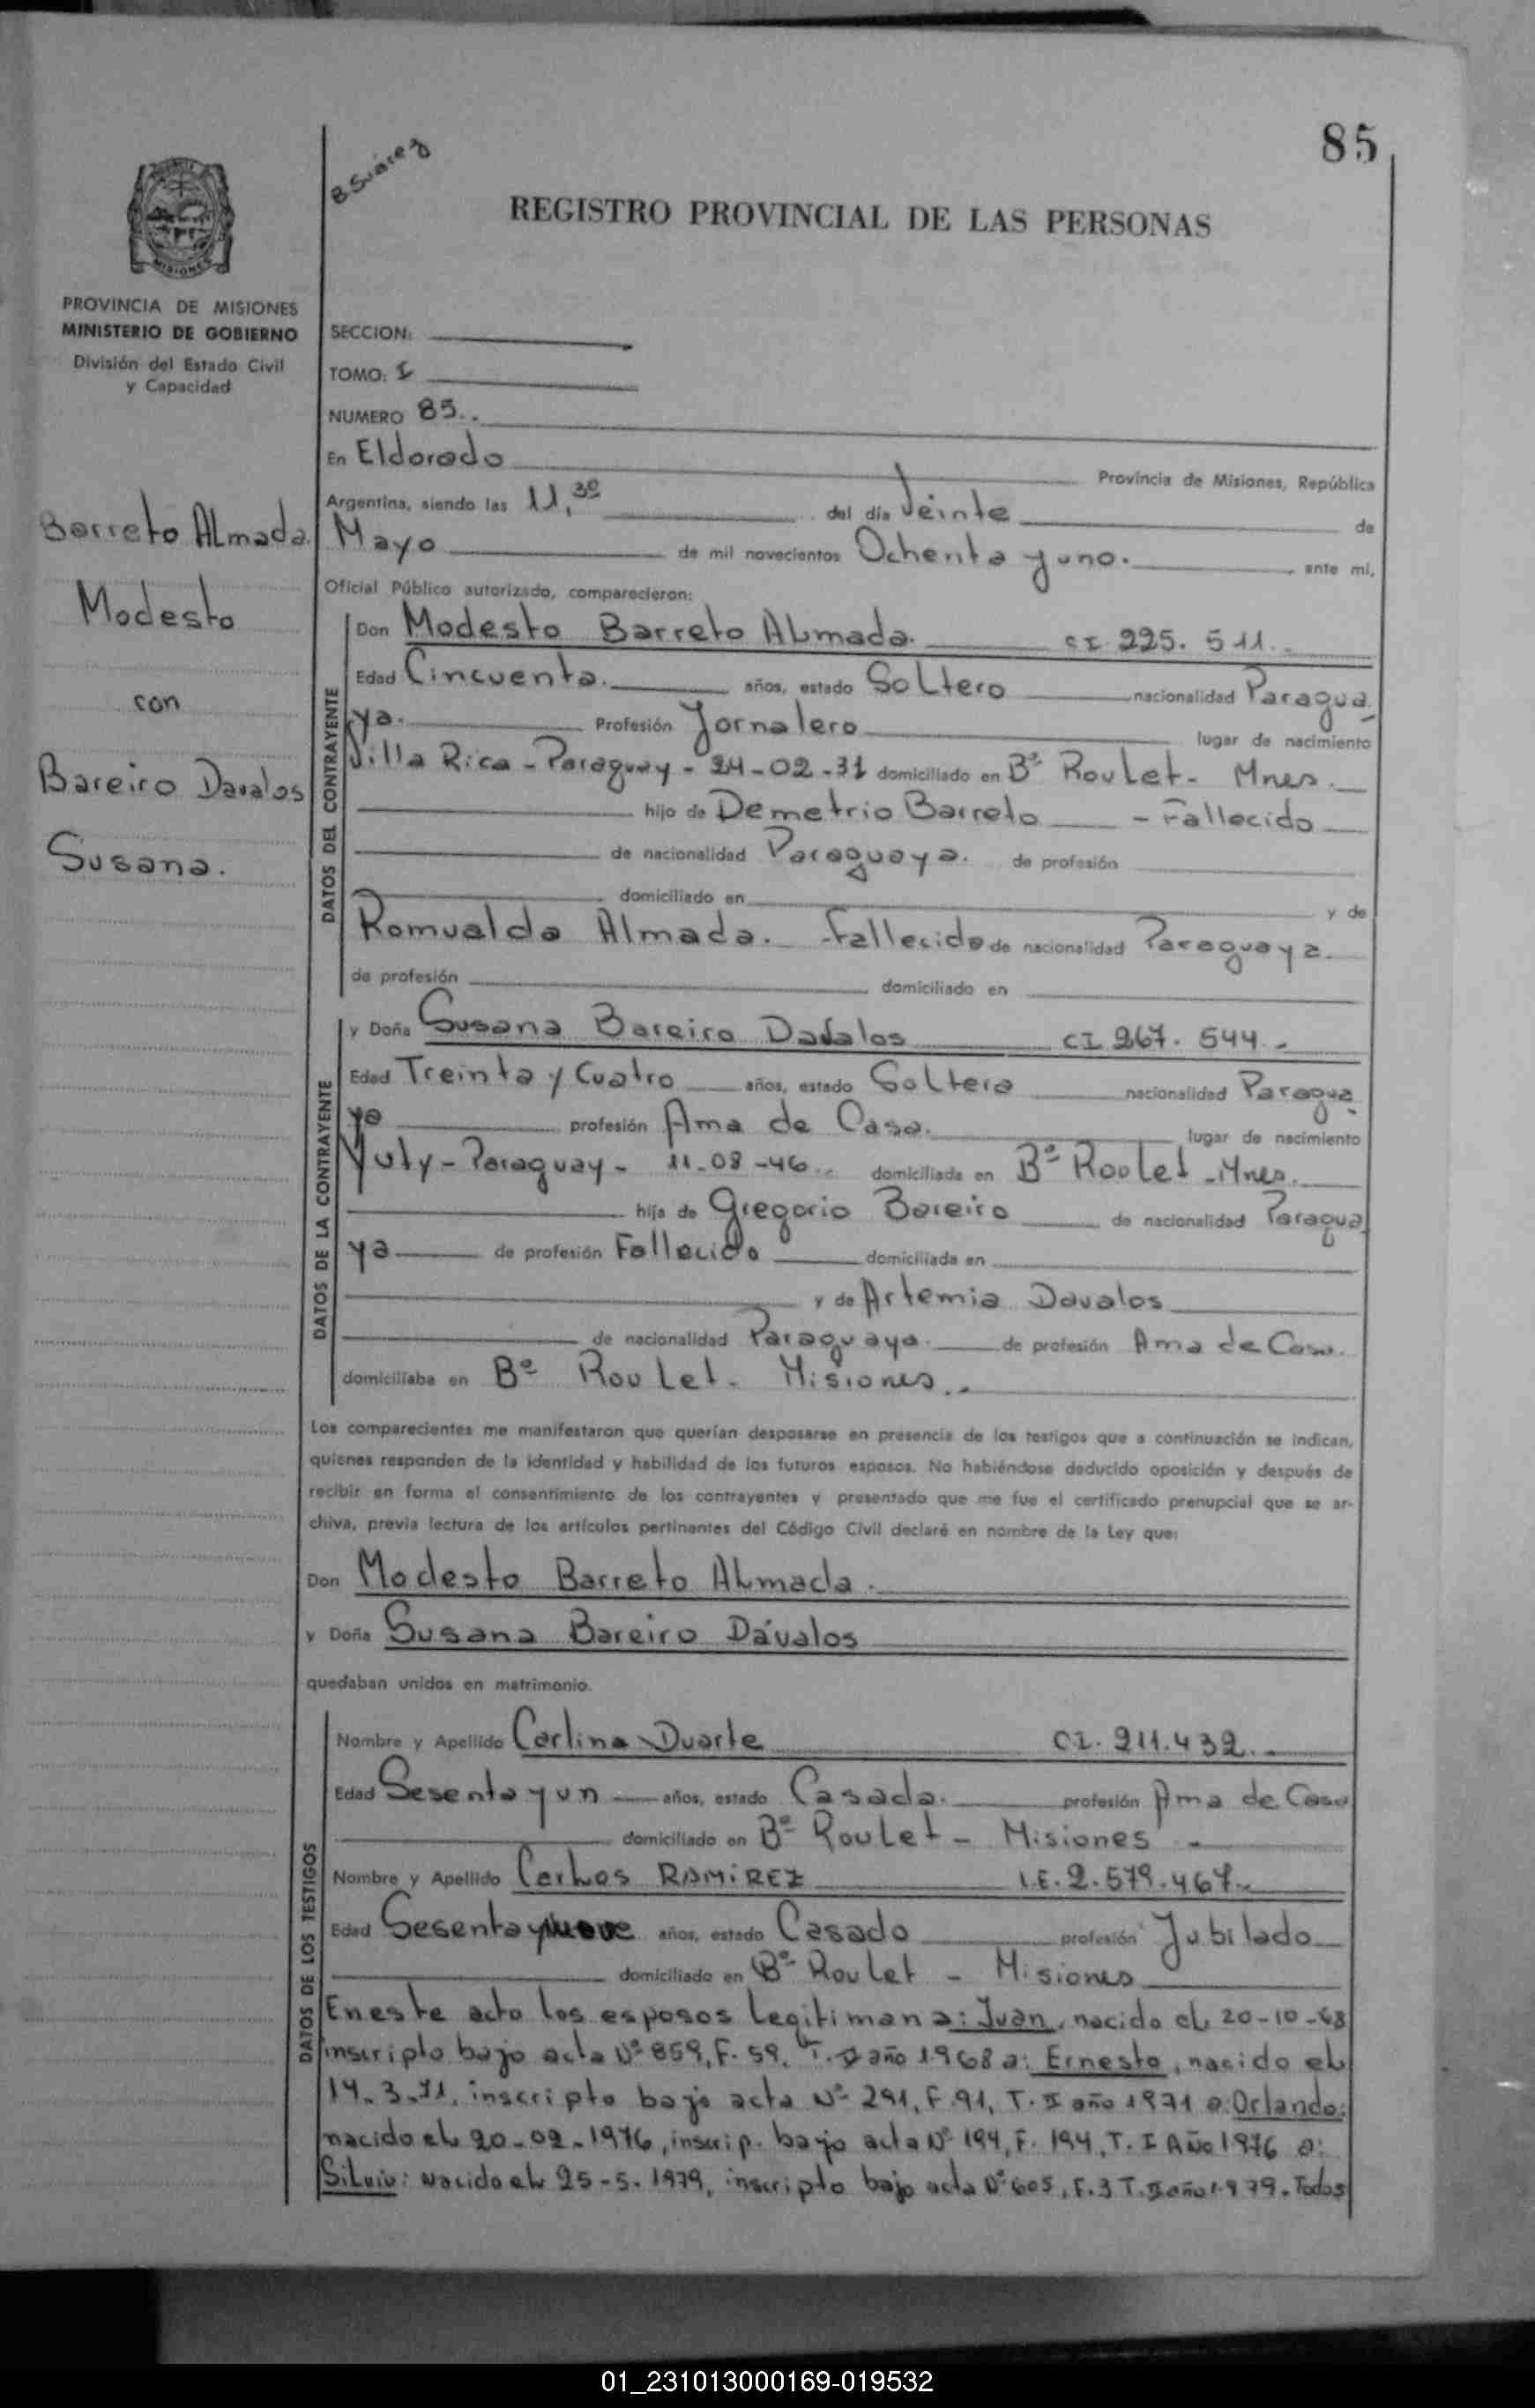 85
B Suárez
REGISTRO PROVINCIAL DE LAS PERSONAS
MISIONES
PROVINCIA DE MISIONES
MINISTERIO DE GOBIERNO
División del Estado Civil
y Capacidad
Barreto Almada.
Modesto
con
Bareiro Davalos
Susana.
SECCION:
TOMO: I
NUMERO 85..
En Eldorado Provincia de Misiones, República
Argentina, siendo las 11,30 del día Veinte de
Mayo de mil novecientos Ochenta y uno. ante mí,
Oficial Público autorizado, comparecieron:
DATOS DEL CONTRAYENTE
Don Modesto Barreto Almada. CI. 225. 511.
Edad Cincuenta. años, estado Soltero nacionalidad Paragua
ya. Profesión Jornalero lugar de nacimiento
Villa Rica - Paraguay - 24-02-31 domiciliado en Bº Roulet - Mnes.
hijo de Demetrio Barreto - Fallecido
de nacionalidad Paraguaya. de profesión
domiciliado en y de
Romualda Almada. - Fallecida de nacionalidad Paraguaya.
de profesión domiciliado en
DATOS DE LA CONTRAYENTE
y Doña Susana Bareiro Davalos CI 267. 544 -
Edad Treinta y Cuatro años, estado Soltera nacionalidad Paragua
ya profesión Ama de Casa. lugar de nacimiento
Yuty - Paraguay - 11-08-46.. domiciliada en Bº Roulet - Mnes.
hija de Gregorio Bareiro de nacionalidad Paragua
ya de profesión Fallecido domiciliada en
y de Artemia Davalos
de nacionalidad Paraguaya. de profesión Ama de Casa.
domiciliaba en Bº Roulet - Misiones..
Los comparecientes me manifestaron que querían desposarse en presencia de los testigos que a continuación se indican,
quienes responden de la identidad y habilidad de los futuros esposos. No habiéndose deducido oposición y después de
recibir en forma el consentimiento de los contrayentes y presentado que me fue el certificado prenupcial que se ar-
chiva, previa lectura de los artículos pertinentes del Código Civil declaré en nombre de la Ley que:
Don Modesto Barreto Almada.
y Doña Susana Bareiro Dávalos
quedaban unidos en matrimonio.
DATOS DE LOS TESTIGOS
Nombre y Apellido Carlina Duarte CI. 211.432..
Edad Sesenta y un años, estado Casada. profesión Ama de Casa
domiciliado en Bº Roulet - Misiones -
Nombre y Apellido Carlos RAMIREZ L.E. 2.579.467
Edad Sesenta y nueve años, estado Casado profesión Jubilado
domiciliado en Bº Roulet - Misiones
En este acto los esposos legitiman a: Juan, nacido el 20-10-68
inscripto bajo acta Nº 859, F. 59, T. II año 1968 a: Ernesto, nacido el
14-3-71, inscripto bajo acta Nº 291, F. 91, T. II año 1971 a: Orlando:
nacido el 20-02-1976, inscrip. bajo acta Nº 194, F. 194, T. I Año 1976 a:
Silvio: nacido el 25-5-1979, inscripto bajo acta Nº 605, F. 3 T. II año 1979. Todos
01_231013000169-019532